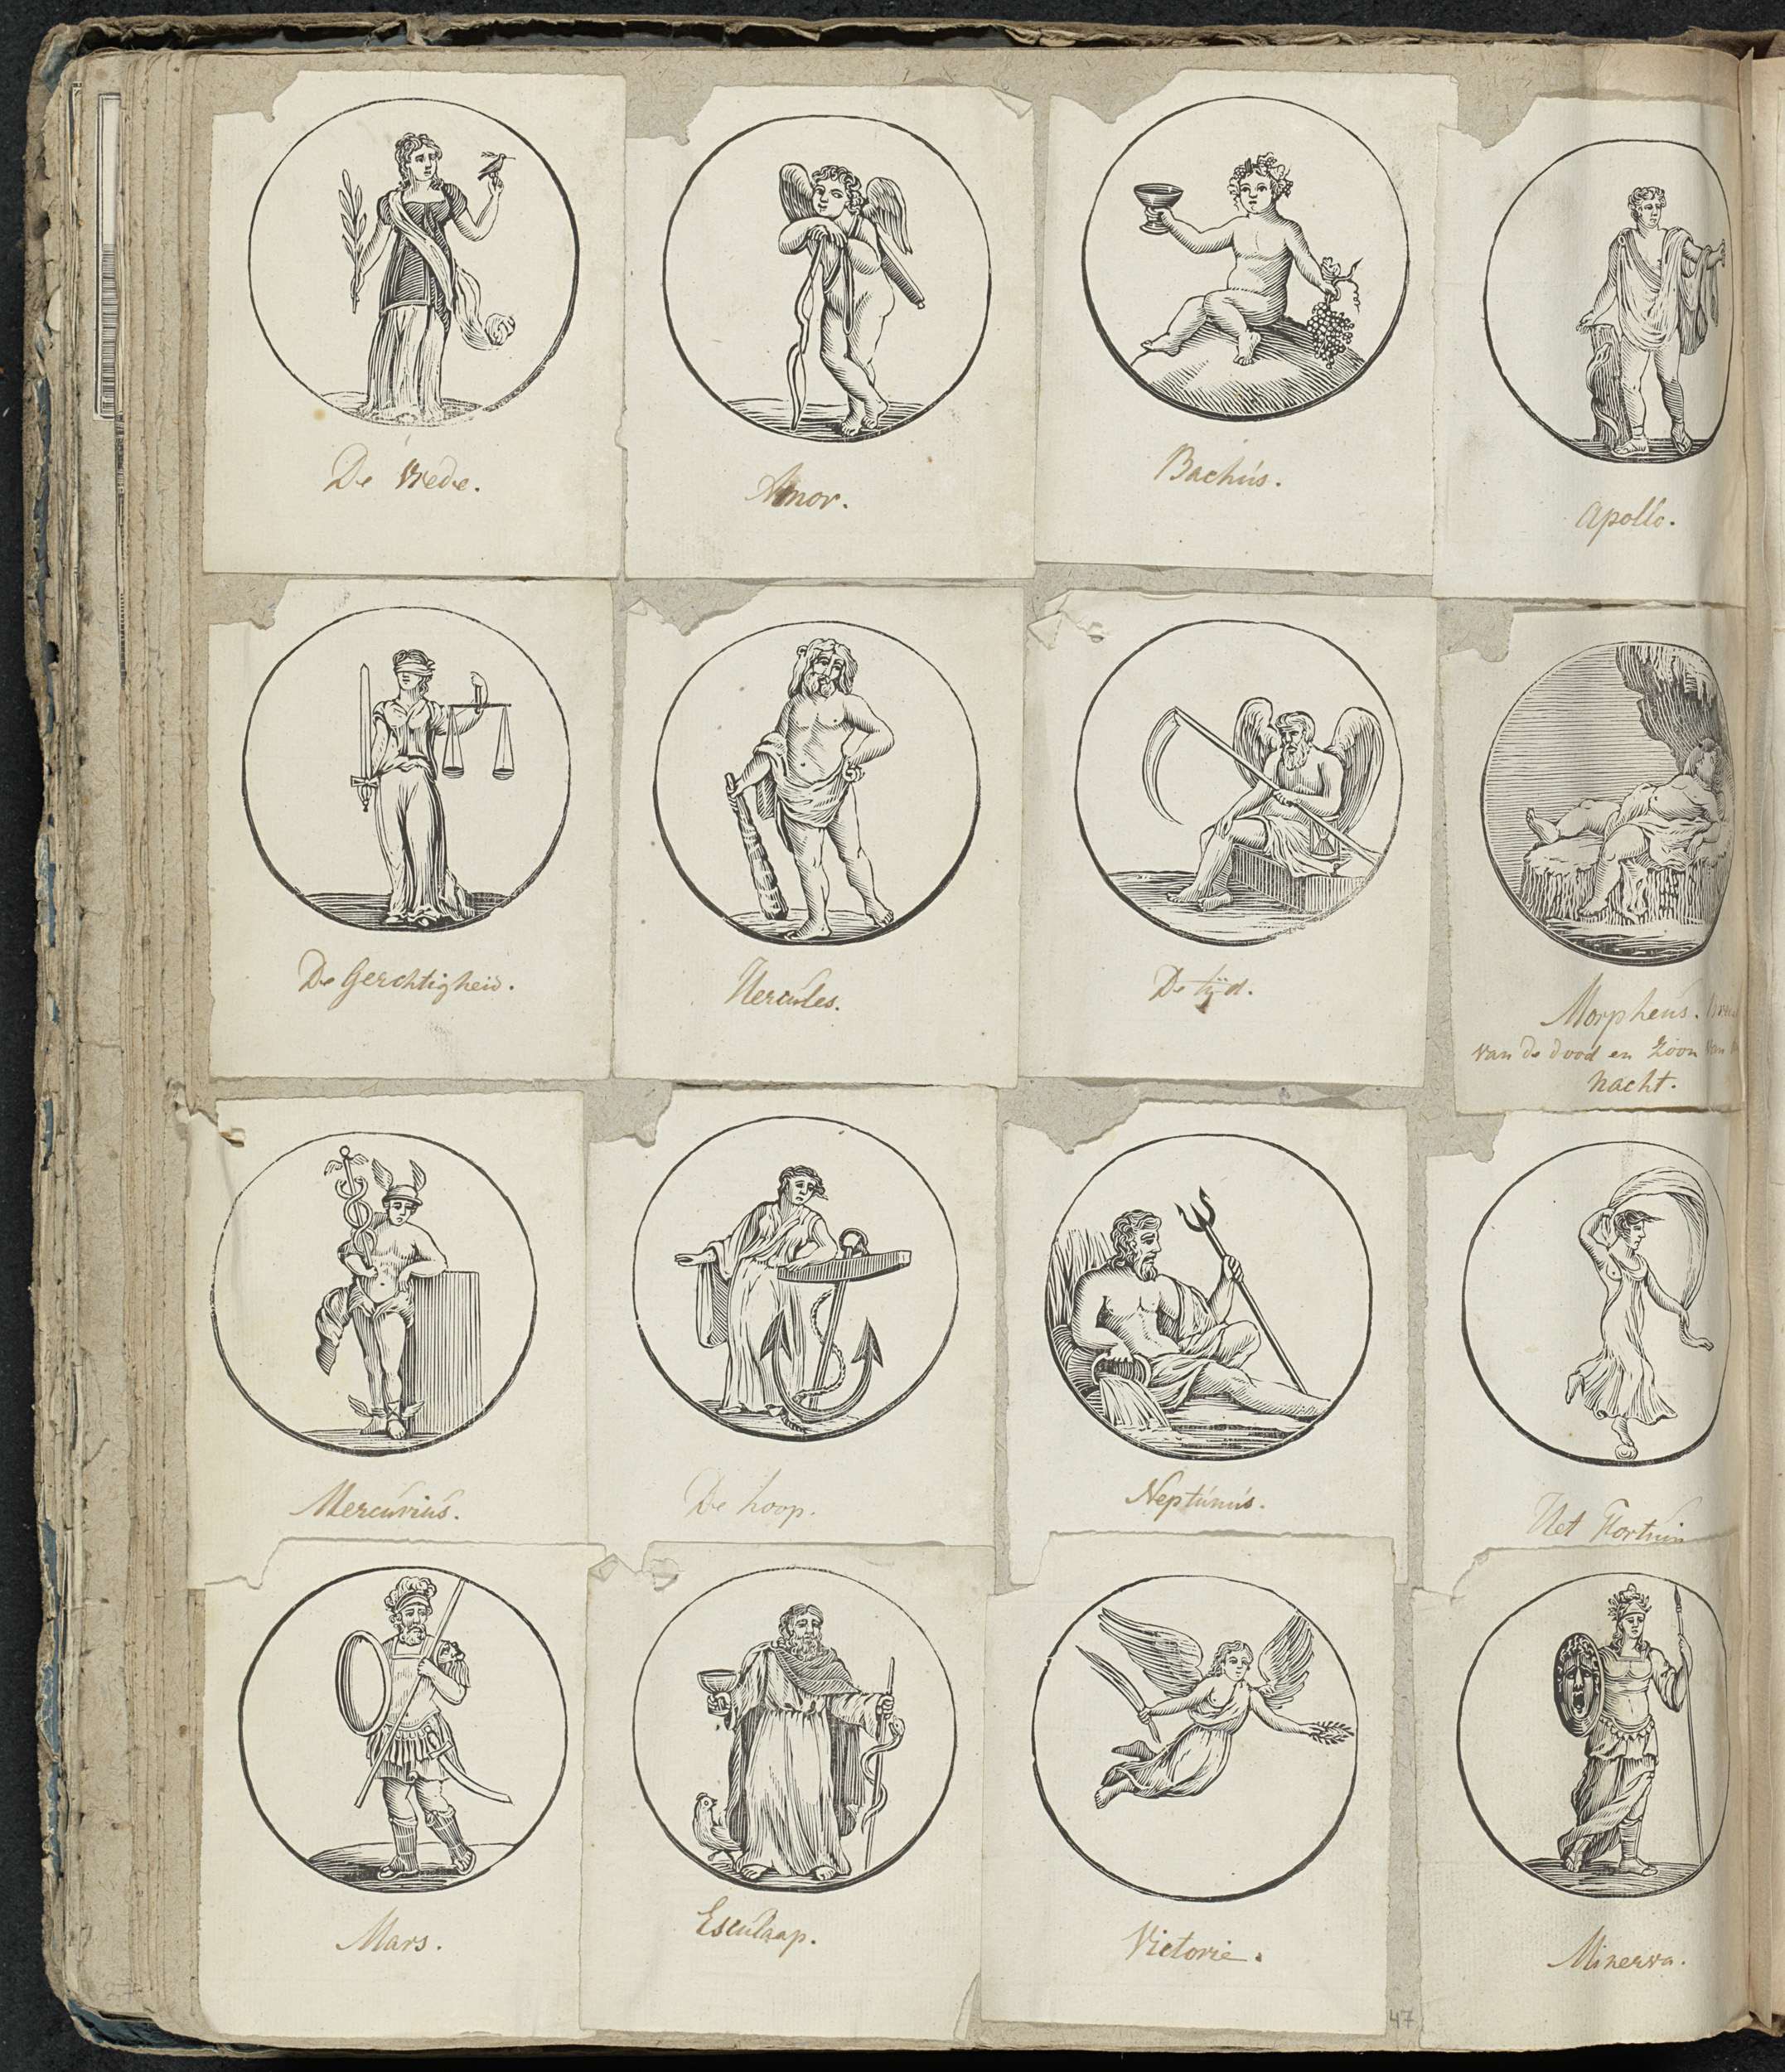 De vrede.
Amor.
Bachús.
Apollo.
De Gerchtigheid.
Hercúles.
De tijd.
Morpheús.
van de dood en zoon van
nacht.
Mercúriús.
De hoop.
Neptúnús.
Het Fortuin
Mars.
Esculaap.
Victorie.
Minerva.
47